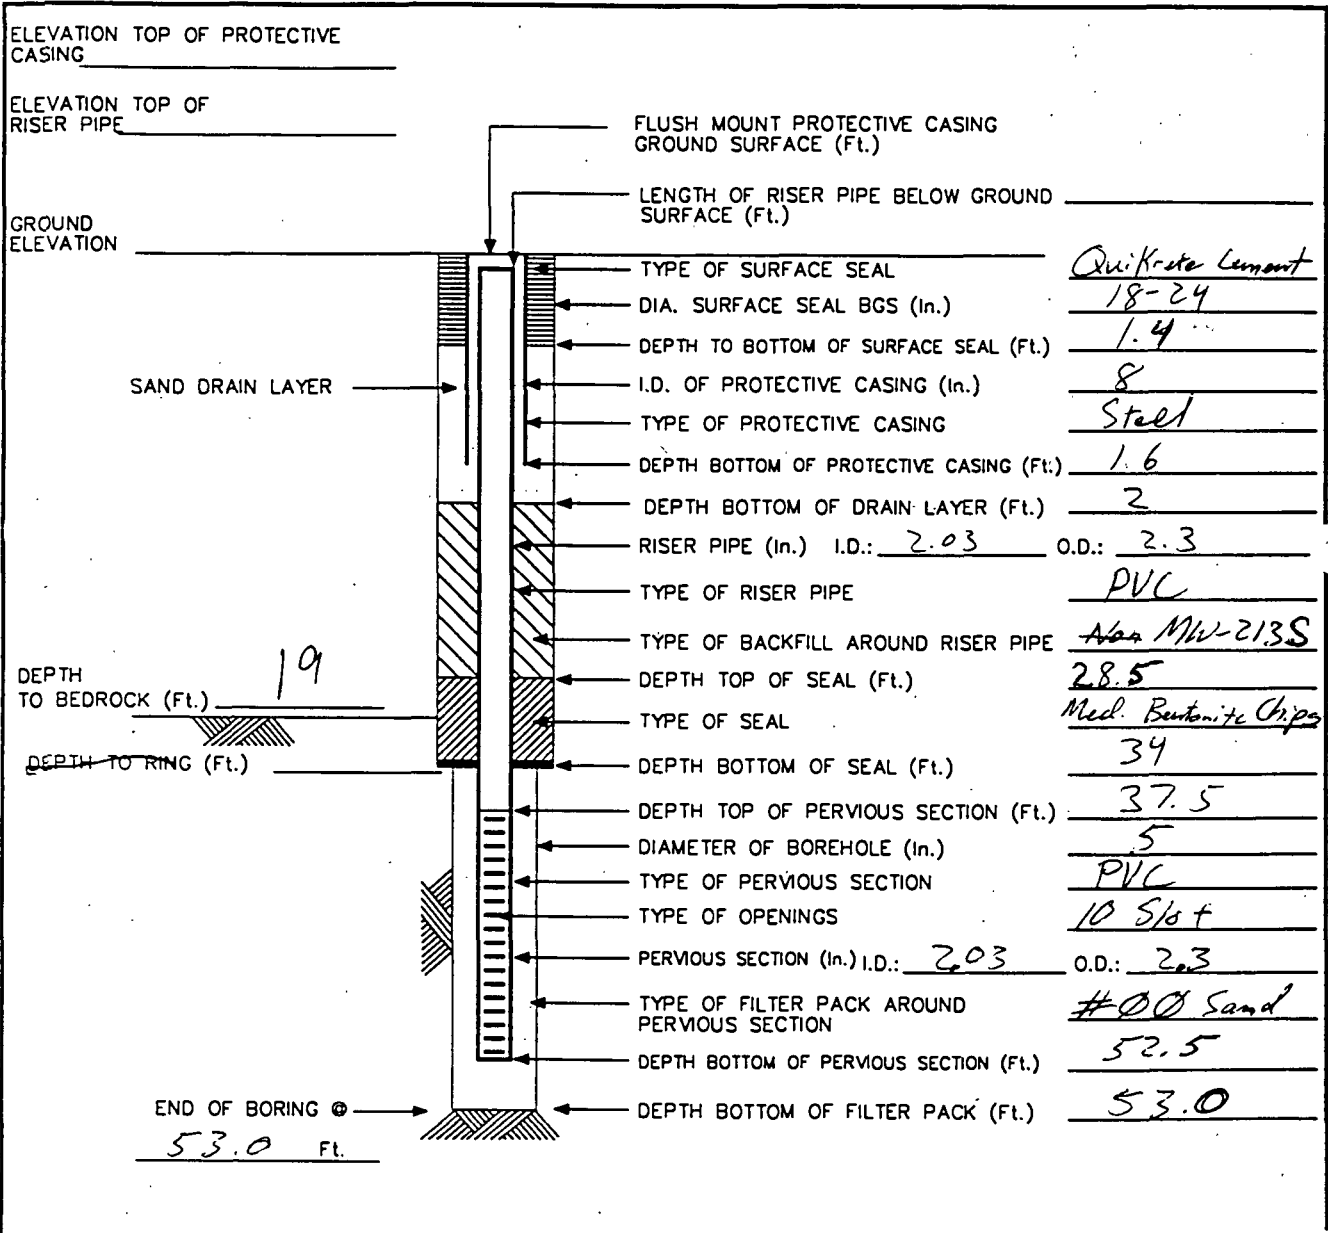 ELEVATION TOP OF PROTECTIVE
CASING
ELEVATION TOP OF
RISER PIPE
FLUSH MOUNT PROTECTIVE CASING
GROUND SURFACE (Ft.)
LENGTH OF RISER PIPE BELOW GROUND
SURFACE (Ft.)
GROUND
ELEVATION
TYPE OF SURFACE SEAL QuiKrete Cement
DIA. SURFACE SEAL BGS (In.) 18-24
DEPTH TO BOTTOM OF SURFACE SEAL (Ft.) 1.4
SAND DRAIN LAYER
I.D. OF PROTECTIVE CASING (In.) 8
TYPE OF PROTECTIVE CASING Steel
DEPTH BOTTOM OF PROTECTIVE CASING (Ft.) 1.6
DEPTH BOTTOM OF DRAIN LAYER (Ft.) 2
RISER PIPE (In.) I.D.: 2.03 O.D.: 2.3
TYPE OF RISER PIPE PVC
TYPE OF BACKFILL AROUND RISER PIPE MW-213S
DEPTH
TO BEDROCK (Ft.) 19
DEPTH TOP OF SEAL (Ft.) 28.5
TYPE OF SEAL Med. Bentonite Chips
DEPTH TO RING (Ft.)
DEPTH BOTTOM OF SEAL (Ft.) 34
DEPTH TOP OF PERVIOUS SECTION (Ft.) 37.5
DIAMETER OF BOREHOLE (In.) 5
TYPE OF PERVIOUS SECTION PVC
TYPE OF OPENINGS 10 Slot
PERVIOUS SECTION (In.) I.D.: 2.03 O.D.: 2.3
TYPE OF FILTER PACK AROUND
PERVIOUS SECTION #00 Sand
DEPTH BOTTOM OF PERVIOUS SECTION (Ft.) 52.5
END OF BORING @
53.0 Ft.
DEPTH BOTTOM OF FILTER PACK (Ft.) 53.0